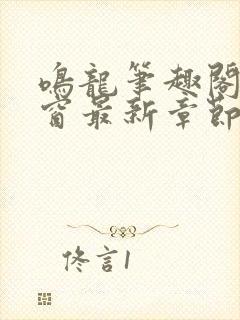 鳴龍筆趣閣
窗最新章節
佟言1